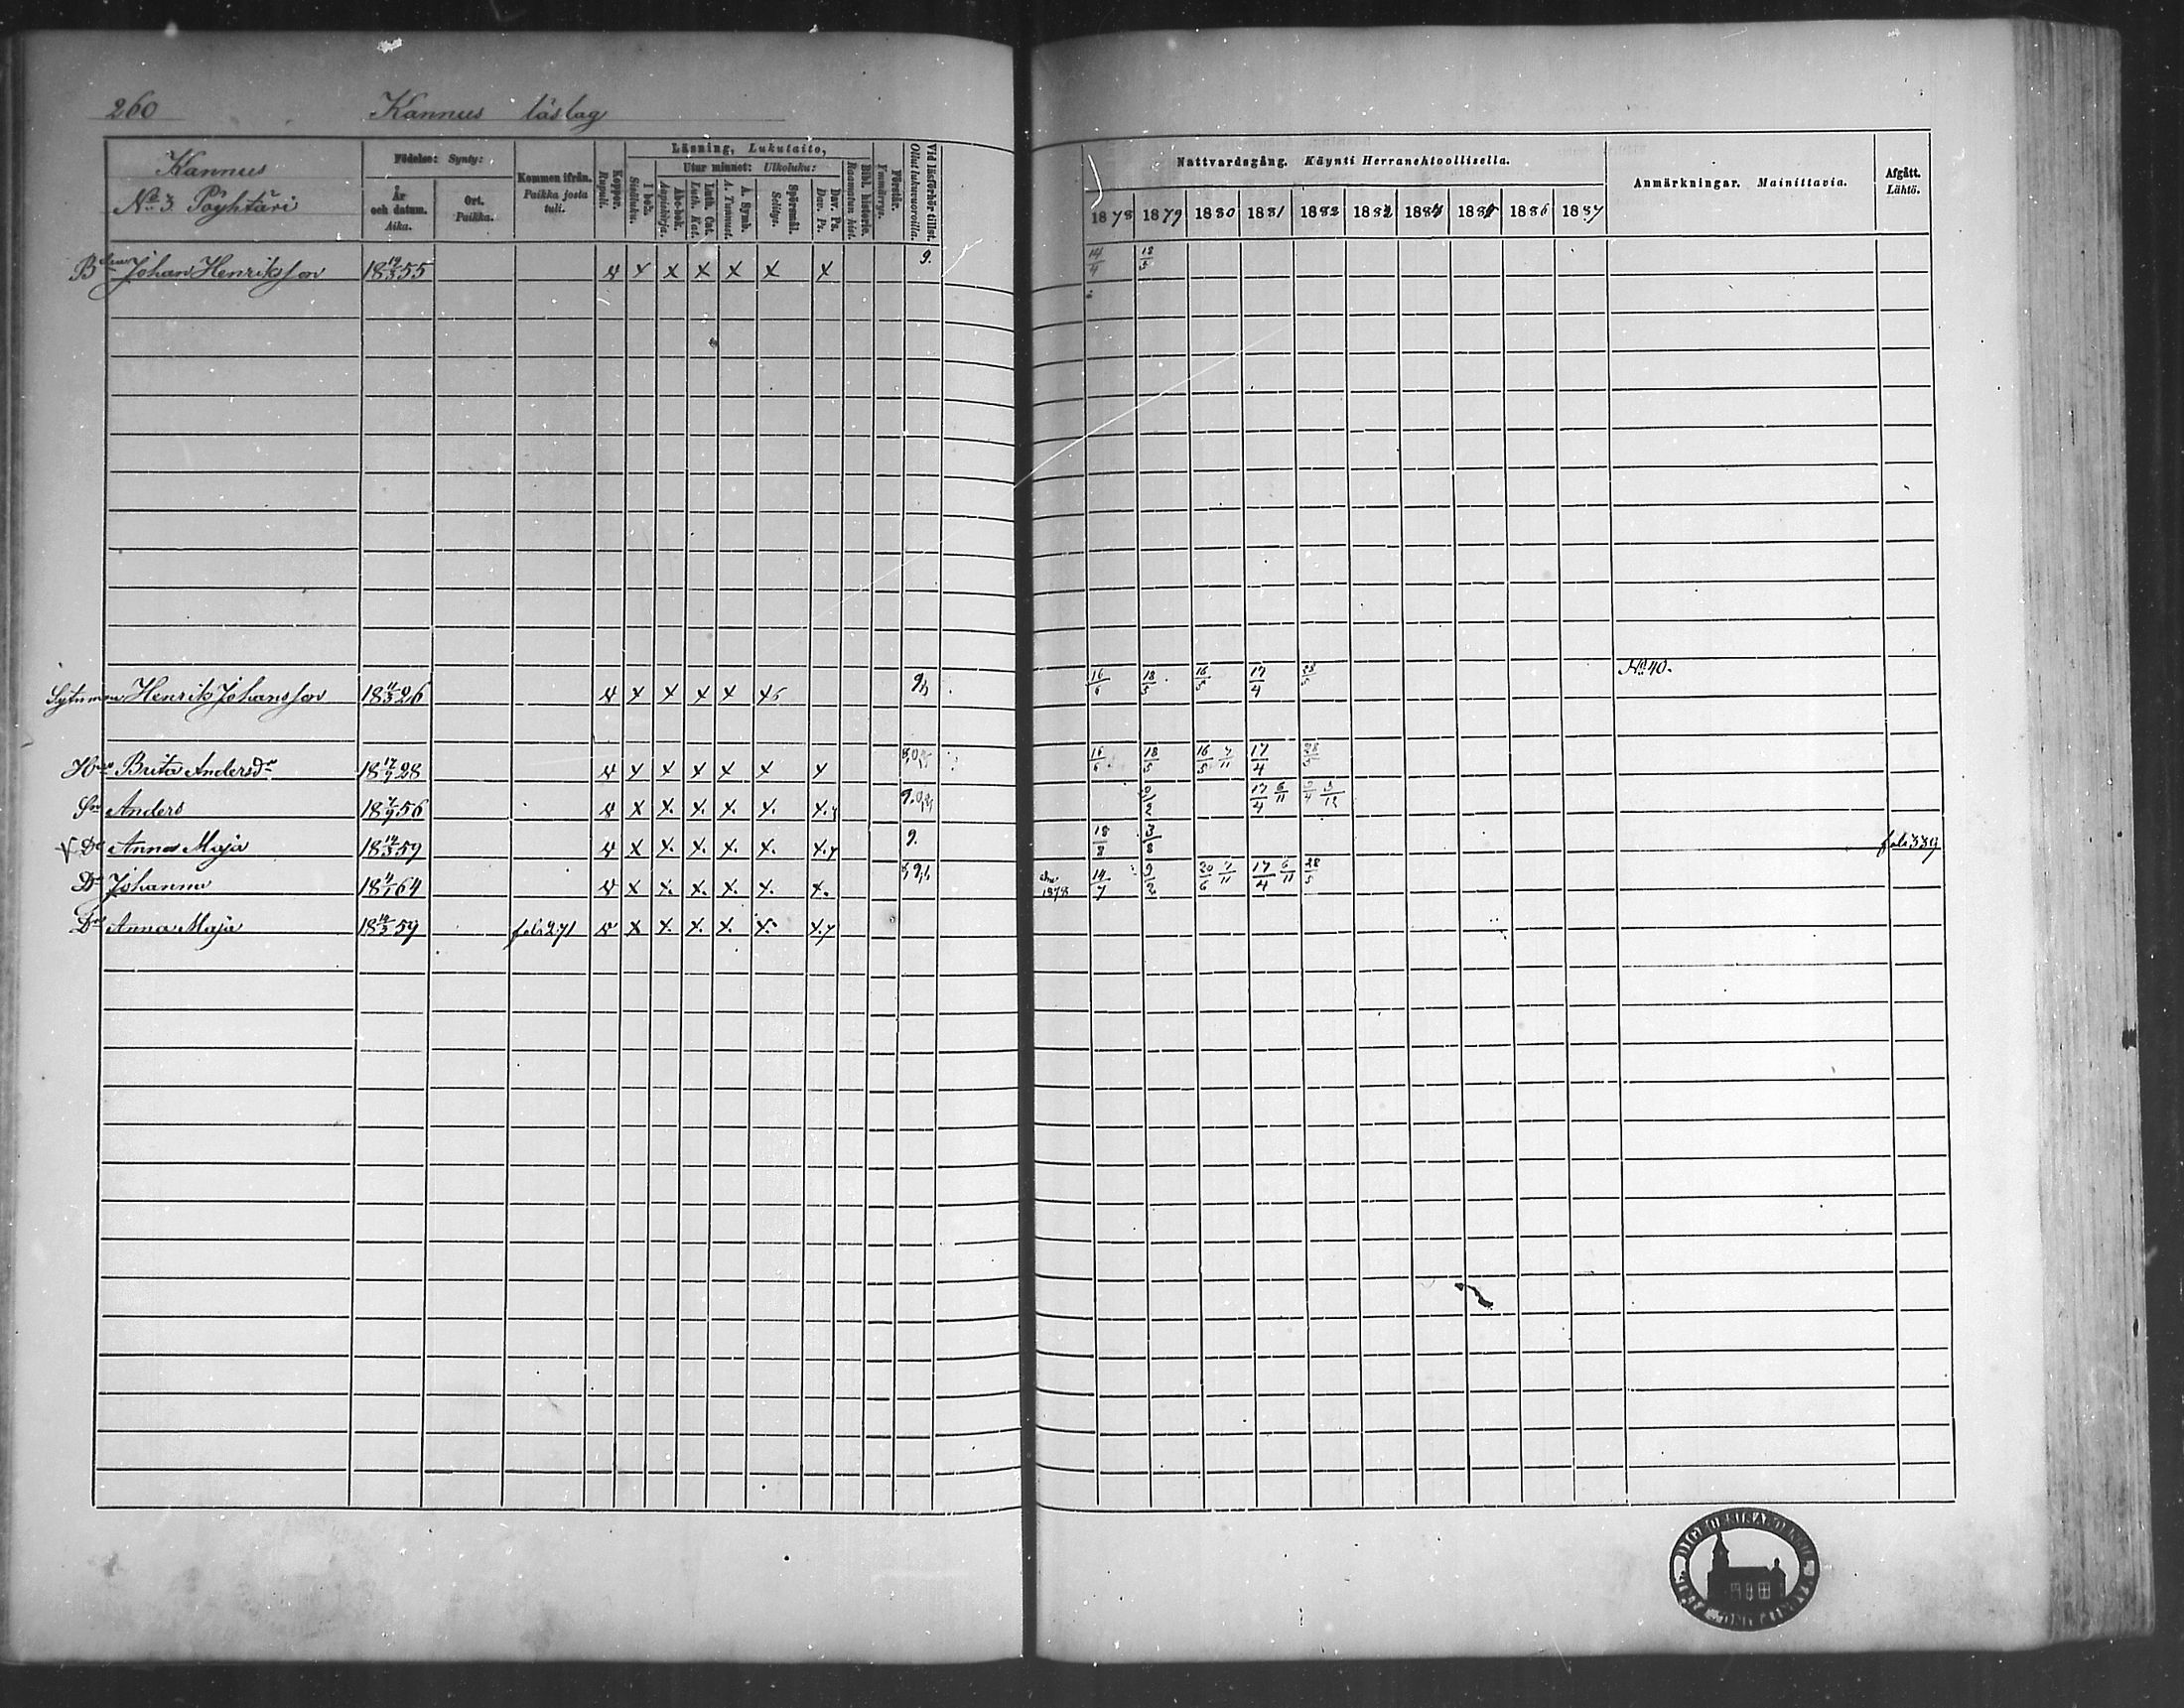 260 Kannus läslag
Kannus
No 3 Pöyhtäri
Födelse: Synty:
År och datum. Aika.
Ort. Paikka.
Kommen ifrån. Paikka josta tuli.
Koppor. Rupuli.
Läsning, Lukutaito,
I bok. Sisäluku.
Utur minnet: Ulkoluku:
Abc-bok. Aapiskirja.
Luth. Cat. Luth. Kat.
A. Symb. A. Tunnust.
Spörsmål. Selitys.
Dav. Ps. Dav. Ps.
Bibl. historie. Raamatun hist.
Förstår. Ymmärrys.
Vid läsförhör tillst. Ollut lukuvuoroilla.
Nattvardsgång. Käynti Herranehtoollisella.
1878 1879 1880 1881 1882 1883 1884 1885 1886 1887
Anmärkningar. Mainittavia.
Afgått. Lähtö.
Johan Henriksson 18 19/3 55 x x x x x x 9. 14/4 18/5
Henrik Johansson 18 11/3 26 x x x x x 16/6 18/5 16/5 17/4 28/5 No 40.
Brita Andersdr 18 17/7 28 x x x x x x 16/6 18/5 16/5 7/11 17/4 28/5
Sn Anders 18 7/9 56 x x. x. x. x. x. 9/2 17/4 6/11
V Dr Anna Maja 18 14/3 59 x x. x. x. x. x. 9. 18/8 3/8 fol: 339
Dr Johanna 18 4/1 64 x x. x. x. x. x. 1878 14/7 9/2 20/6 7/11 17/4 6/11 28/5
Dr Anna Maja 18 14/3 59 fol: 271 x x. x. x. x. x.